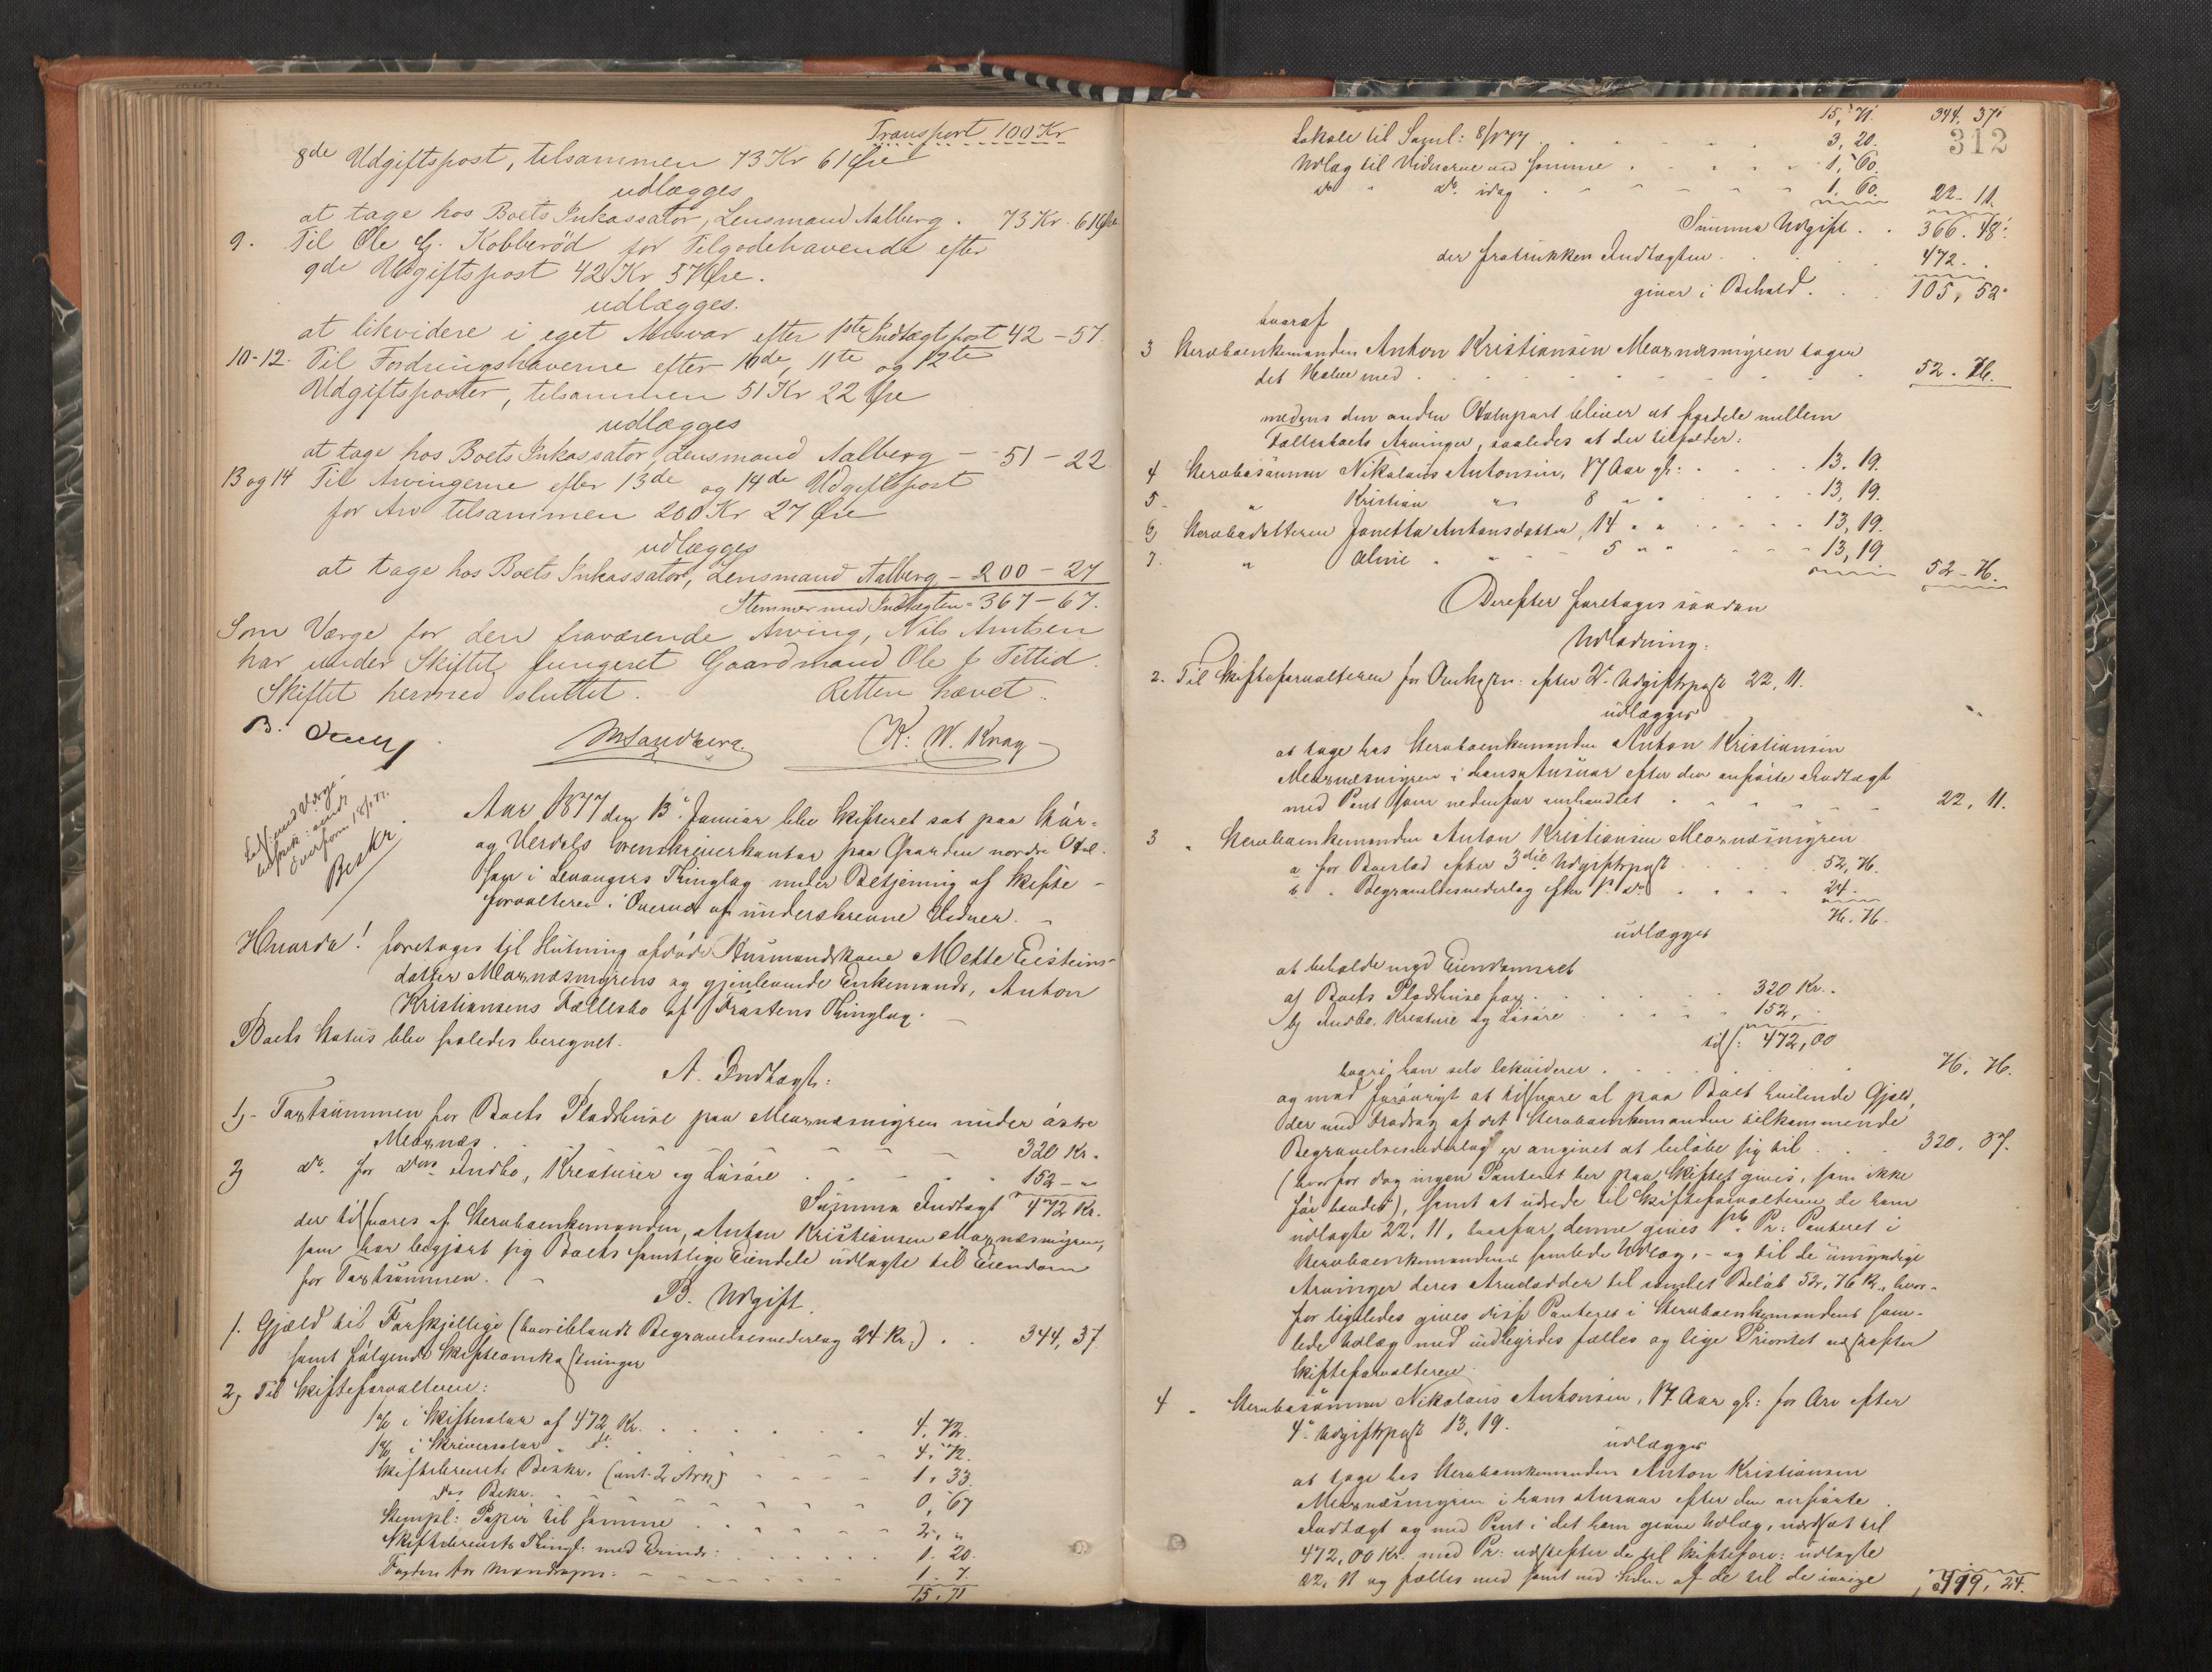 Transport 100 Kr
8de Udgiftspost, tilsammen 73 Kr 61 Øre
udlægges
at tage hos Boets Inkassator, Lensmand Aalberg . 73 Kr. 61 Øre
9. Til Ole G. Kobberød for Tilgodehavende efter
9de Udgiftspost 42 Kr 57 Øre.
udlægges.
at likvidere i eget Ansvar efter 1ste Indtægtspost 42 - 57
10-12. Til Fordringshaverne efter 10de, 11te og 12te
Udgiftsposter, tilsammen 51 Kr 22 Øre
udlægges
at tage hos Boets Inkassator, Lensmand Aalberg - 51 - 22
13 og 14 Til Arvingerne efter 13de og 14de Udgiftspost
for Arv tilsammen 200 Kr 27 Øre
udlægges
at tage hos Boets Inkassator, Lensmand Aalberg - 200 - 27
Stemmer med Indtægten = 367 - 67.
Som Værge for den fraværende Arving, Nils Arntsen
har under Skiftet fungeret Gaardmand Ole Tettid.
Skiftet hermed sluttet. Retten hævet.
B. M Sandberg. K. W. Krag
Beskr
Aar 1877 den 13de Januar blev Skifteret sat paa Stør-
og Verdals Sorenskriverkontor paa Gaarden nordre
i Levangers Thinglag under Betjening af Skifte-
forvalteren i Overvær af underskrevne Vidner.
Hvorda! foretoges til Slutning afdøde Husmandskone Mette Eisteins-
datter Marnæsmyrens og gjenlevende Enkemands, Anton
Kristiansens Fællesbo af Frostens Thinglag.
Boets Status blev saaledes beregnet.
A. Indtægt:
1) - Taxtsummen for Boets Pladshuse paa Marnæsmyren under østre
Marnæs . . . 320 Kr.
2) do. for dets Indbo, Kreaturer og Løsøre . . 152 - "
Summa Indtægt 472 Kr.
der tilsvares af Stervboenkemanden, Anton Kristiansen Marnæsmyren,
som har begjært sig Boets samtlige Eiendele udlagte til Eiendom
for Taxtsummen.
B. Udgift.
1. Gjæld til Forskjellige (hvoriblandt Begravelsesvederlag 24 Kr.) . . 344, 37
samt følgende Skifteomkostninger
2, Til Skifteforvalteren:
1% i Skiftesalær af 472 Kr. . . . 4, 72.
1% i Skriversalær " do. . . . 4, 72.
Skiftebrevets Beskr. (ant. 2 Ark) . . 1, 33
dets Bekr. . . . 0, 67
Stempl: Papir til samme . . . 2, "
Skiftebrevets Thingl: med . . . 1. 20.
1. 7.
15, 71
15, 71. 344. 37
312
Lokale til Saml: 8/1 77 . . . 3, 20.
Udlæg til Vidnerne ved samme . . . 1, 60.
do " do. idag . . . 1, 60. 22 - 11.
Summa Udgift . . 366. 48.
der fratrukken Indtægten . . 472.
giver i Behold . . 105, 52
hvoraf
3 Stervboenkemanden Anton Kristiansen Marnæsmyren tager
det Halve med . . . 52 . 76.
medens den anden Halvpart bliver at fordele mellem
Fællesboets Arvinger, saaledes at der tilfalder:
4 Stervbosønnen Nikolaus Antonsen, 17 Aar gl: . . 13. 19.
5. " Kristian " 8 " " . . 13, 19.
6 Stervbodatteren Janetta Antonsdatter, 14 " " . . 13, 19.
7. " Oline " " 5 " " . . 13, 19 52 - 76.
Derefter foretoges saadan
Udlodning:
2. Til Skifteforvalteren for Omkostn: efter 2. Udgiftspost 22, 11.
udlægges
at tage hos Stervboenkemanden Anton Kristiansen
Marnæsmyren i hans Ansvar efter den anførte Indtægt
med Pant som nedenfor omhandlet . . . 22, 11.
3 " Stervboenkemanden Anton Kristiansen Marnæsmyren
a for Boeslod efter 3die Udgiftspost . . 52, 76.
b " Begravelsesvederlag efter 1. do . . 24.
76. 76.
udlægges
at beholde med Eiendomsret
a) Boets Pladshuse for . . . 320 Kr.
b) Indbo, Kreature og Løsøre . . . 152,
tils: 472,00
hvori han selv likviderer . . . 76. 76.
og mod forøvrigt at tilsvare al paa Boet hvilende Gjæld,
der med Fradrag af det Stervboenkemanden tilkommende
Begravelsesvederlag er angivet at beløbe sig til . . 320. 37.
(hvorfor dog ingen Panteret her paa Skiftet gives, som ikke
før havdes), samt at udrede til Skifteforvalteren de ham
udlagte 22, 11, hvorfor denne gives 1ste Pr: Panteret i
Stervboenkemandens samlede Udlæg, - og til de umyndige
Arvinger deres Arvelodder til samlet Beløb 52, 76 Kr., hvor-
for ligeledes gives disse Panteret i Stervboenkemandens sam-
lede Udlæg med indbyrdes fælles og lige Prioritet næstefter
Skifteforvalteren.
4 " Stervbosønnen Nikolaus Antonsen, 17 Aar gl: for Arv efter
4. Udgiftspost 13, 19.
udlægges
at tage hos Stervboenkemanden Anton Kristiansen
Marnæsmyren i hans Ansvar efter den anførte
Indtægt og med Pant i det ham givne Udlæg, værdsat til
472,00 Kr. med Pr: næstefter de til Skifteforv: udlagte
22, 11 og fælles med samt ved Siden af de til de øvrige 419, 24.